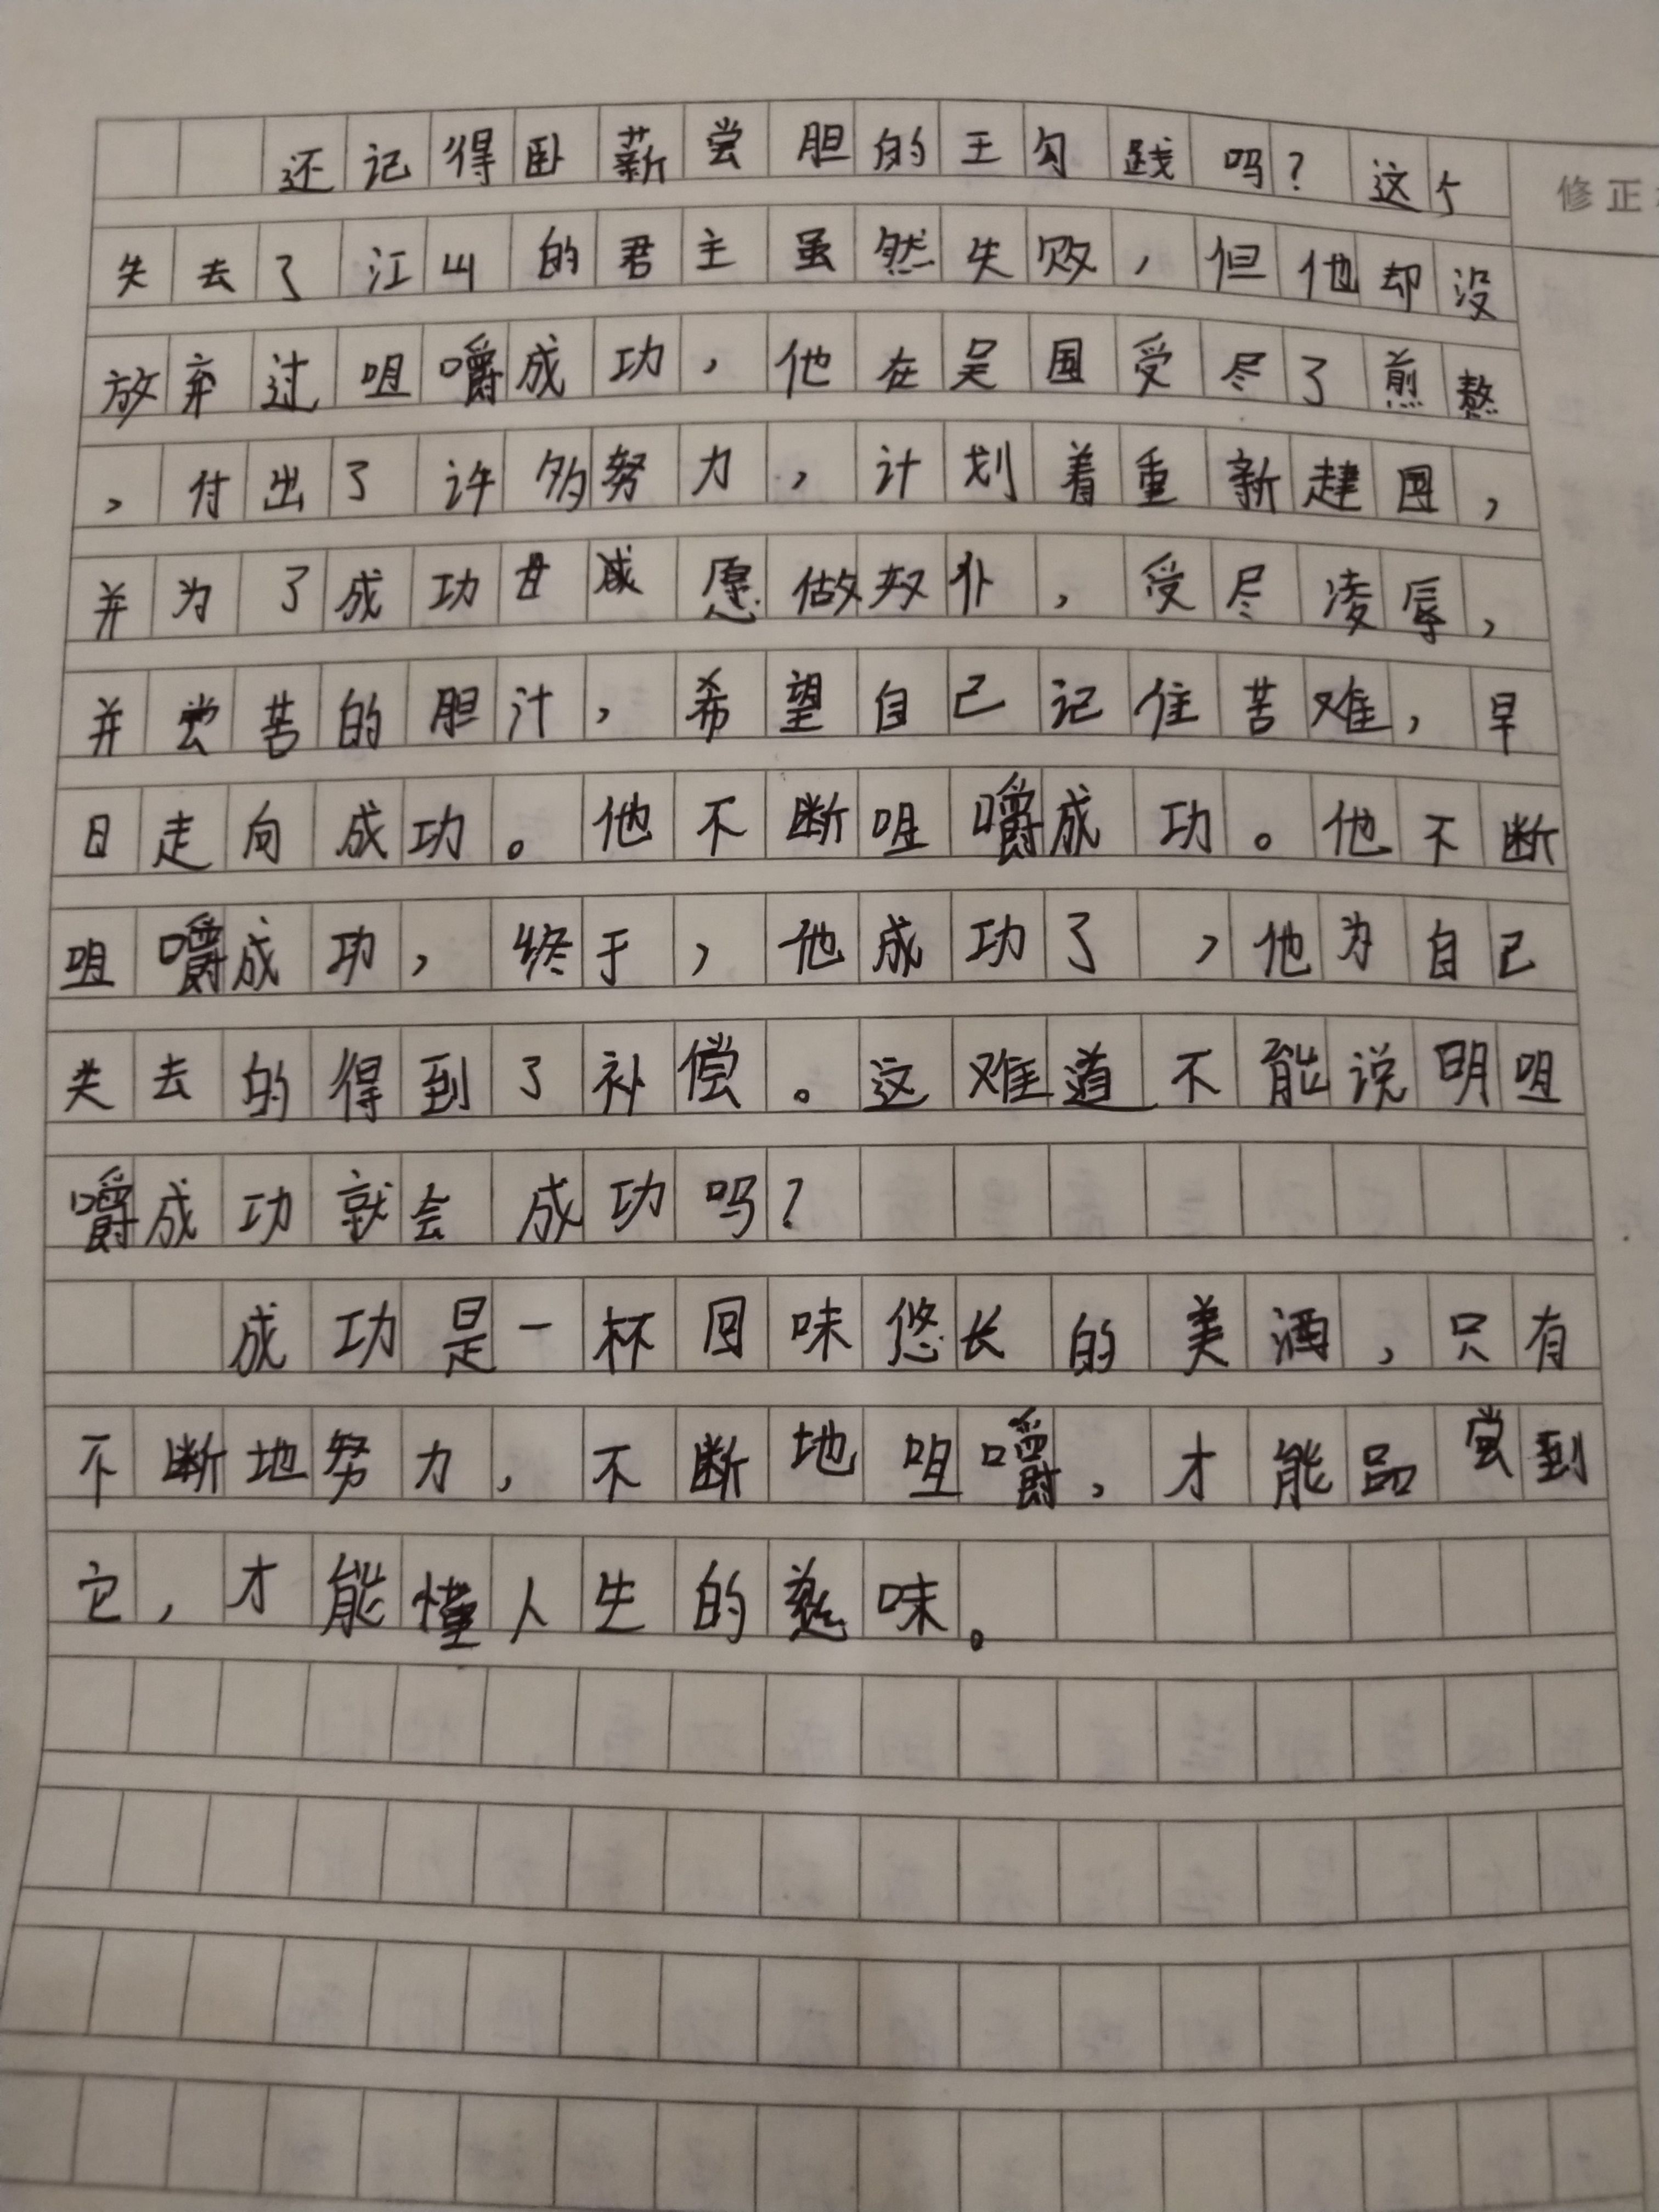 还记得卧薪尝胆的王勾践吗？这个
修正
失去了江山的君主虽然失败，但他却没
放弃过咀嚼成功，他在吴国受尽了煎熬
，付出了许多努力，计划着重新建国，
并为了成功甘愿做奴仆，受尽凌辱，
并尝苦的胆汁，希望自己记住苦难，早
日走向成功。他不断咀嚼成功。他不断
咀嚼成功，终于，他成功了，他为自己
失去的得到了补偿。这难道不能说明咀
嚼成功就会成功吗？
成功是一杯回味悠长的美酒，只有
不断地努力，不断地咀嚼，才能品尝到
它，才能懂人生的味。